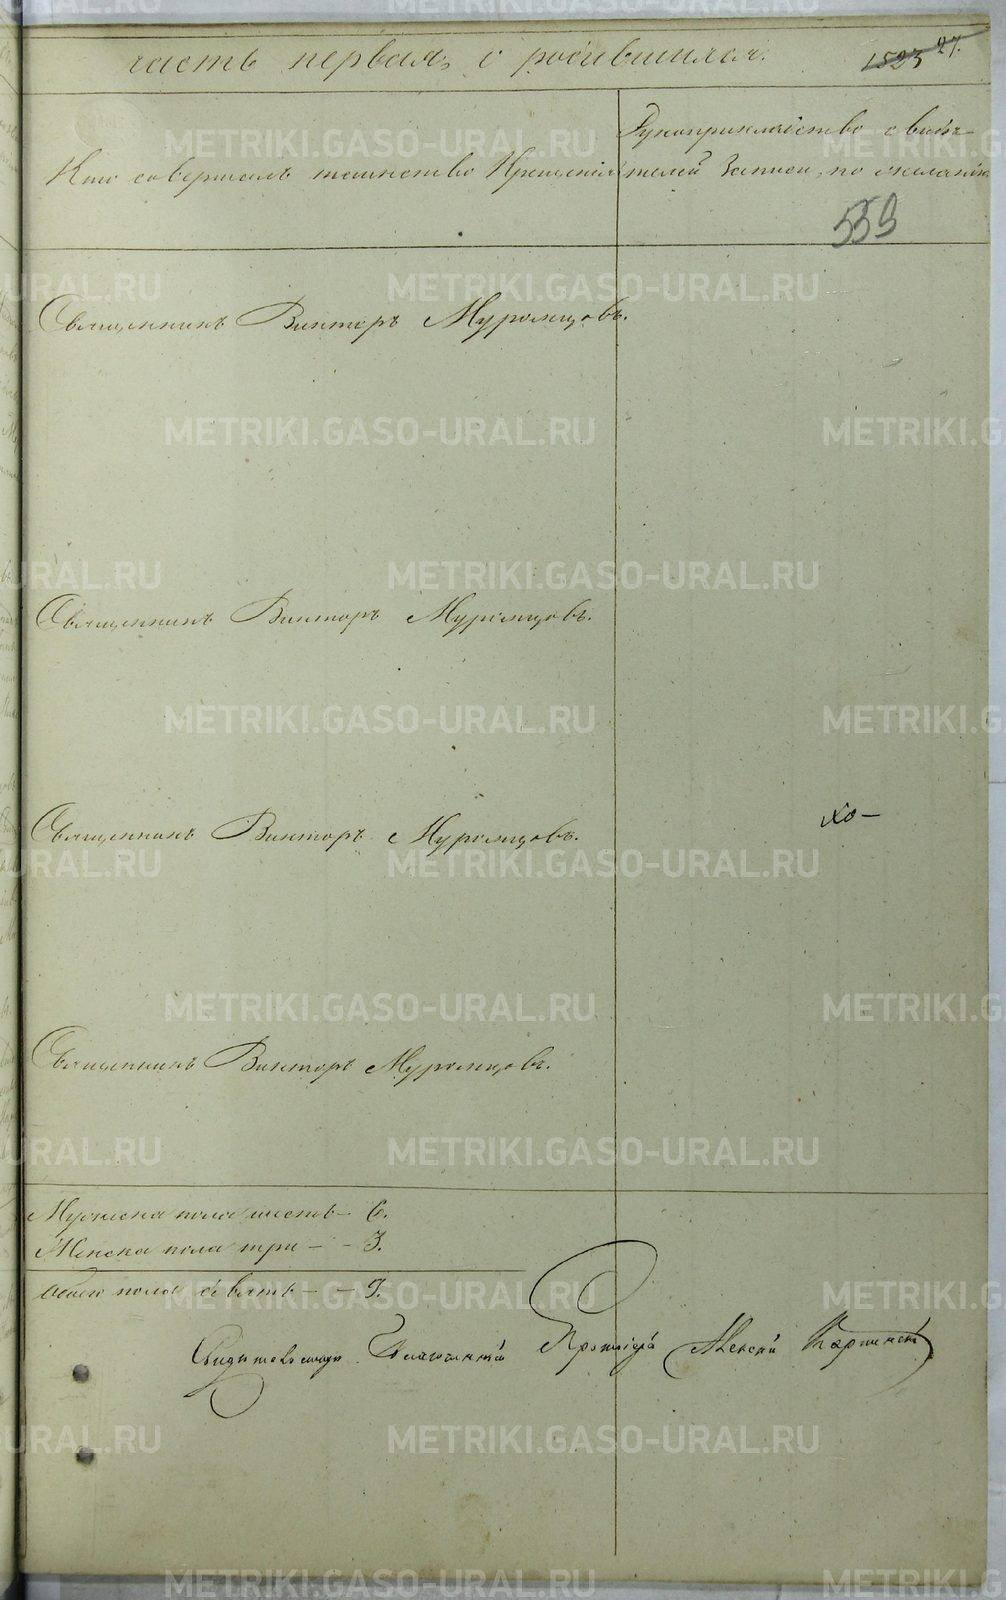 часть первая, о родившихся.
1523 27.
Кто совершалъ таинство Крещенія
Рукоприкладство свидѣ-
телей записи по желанію
559
Священникъ Викторъ Муромцовъ.
Священникъ Викторъ Муромцовъ.
Священникъ Викторъ Муромцовъ.
Священникъ Викторъ Муромцовъ.
Мужеска пола шесть - 6.
Женска пола три - - 3.
Обоего пола девять - - 9.
Свидѣтельствовалъ Благочинный Протоіерей
METRIKI.GASO-URAL.RU